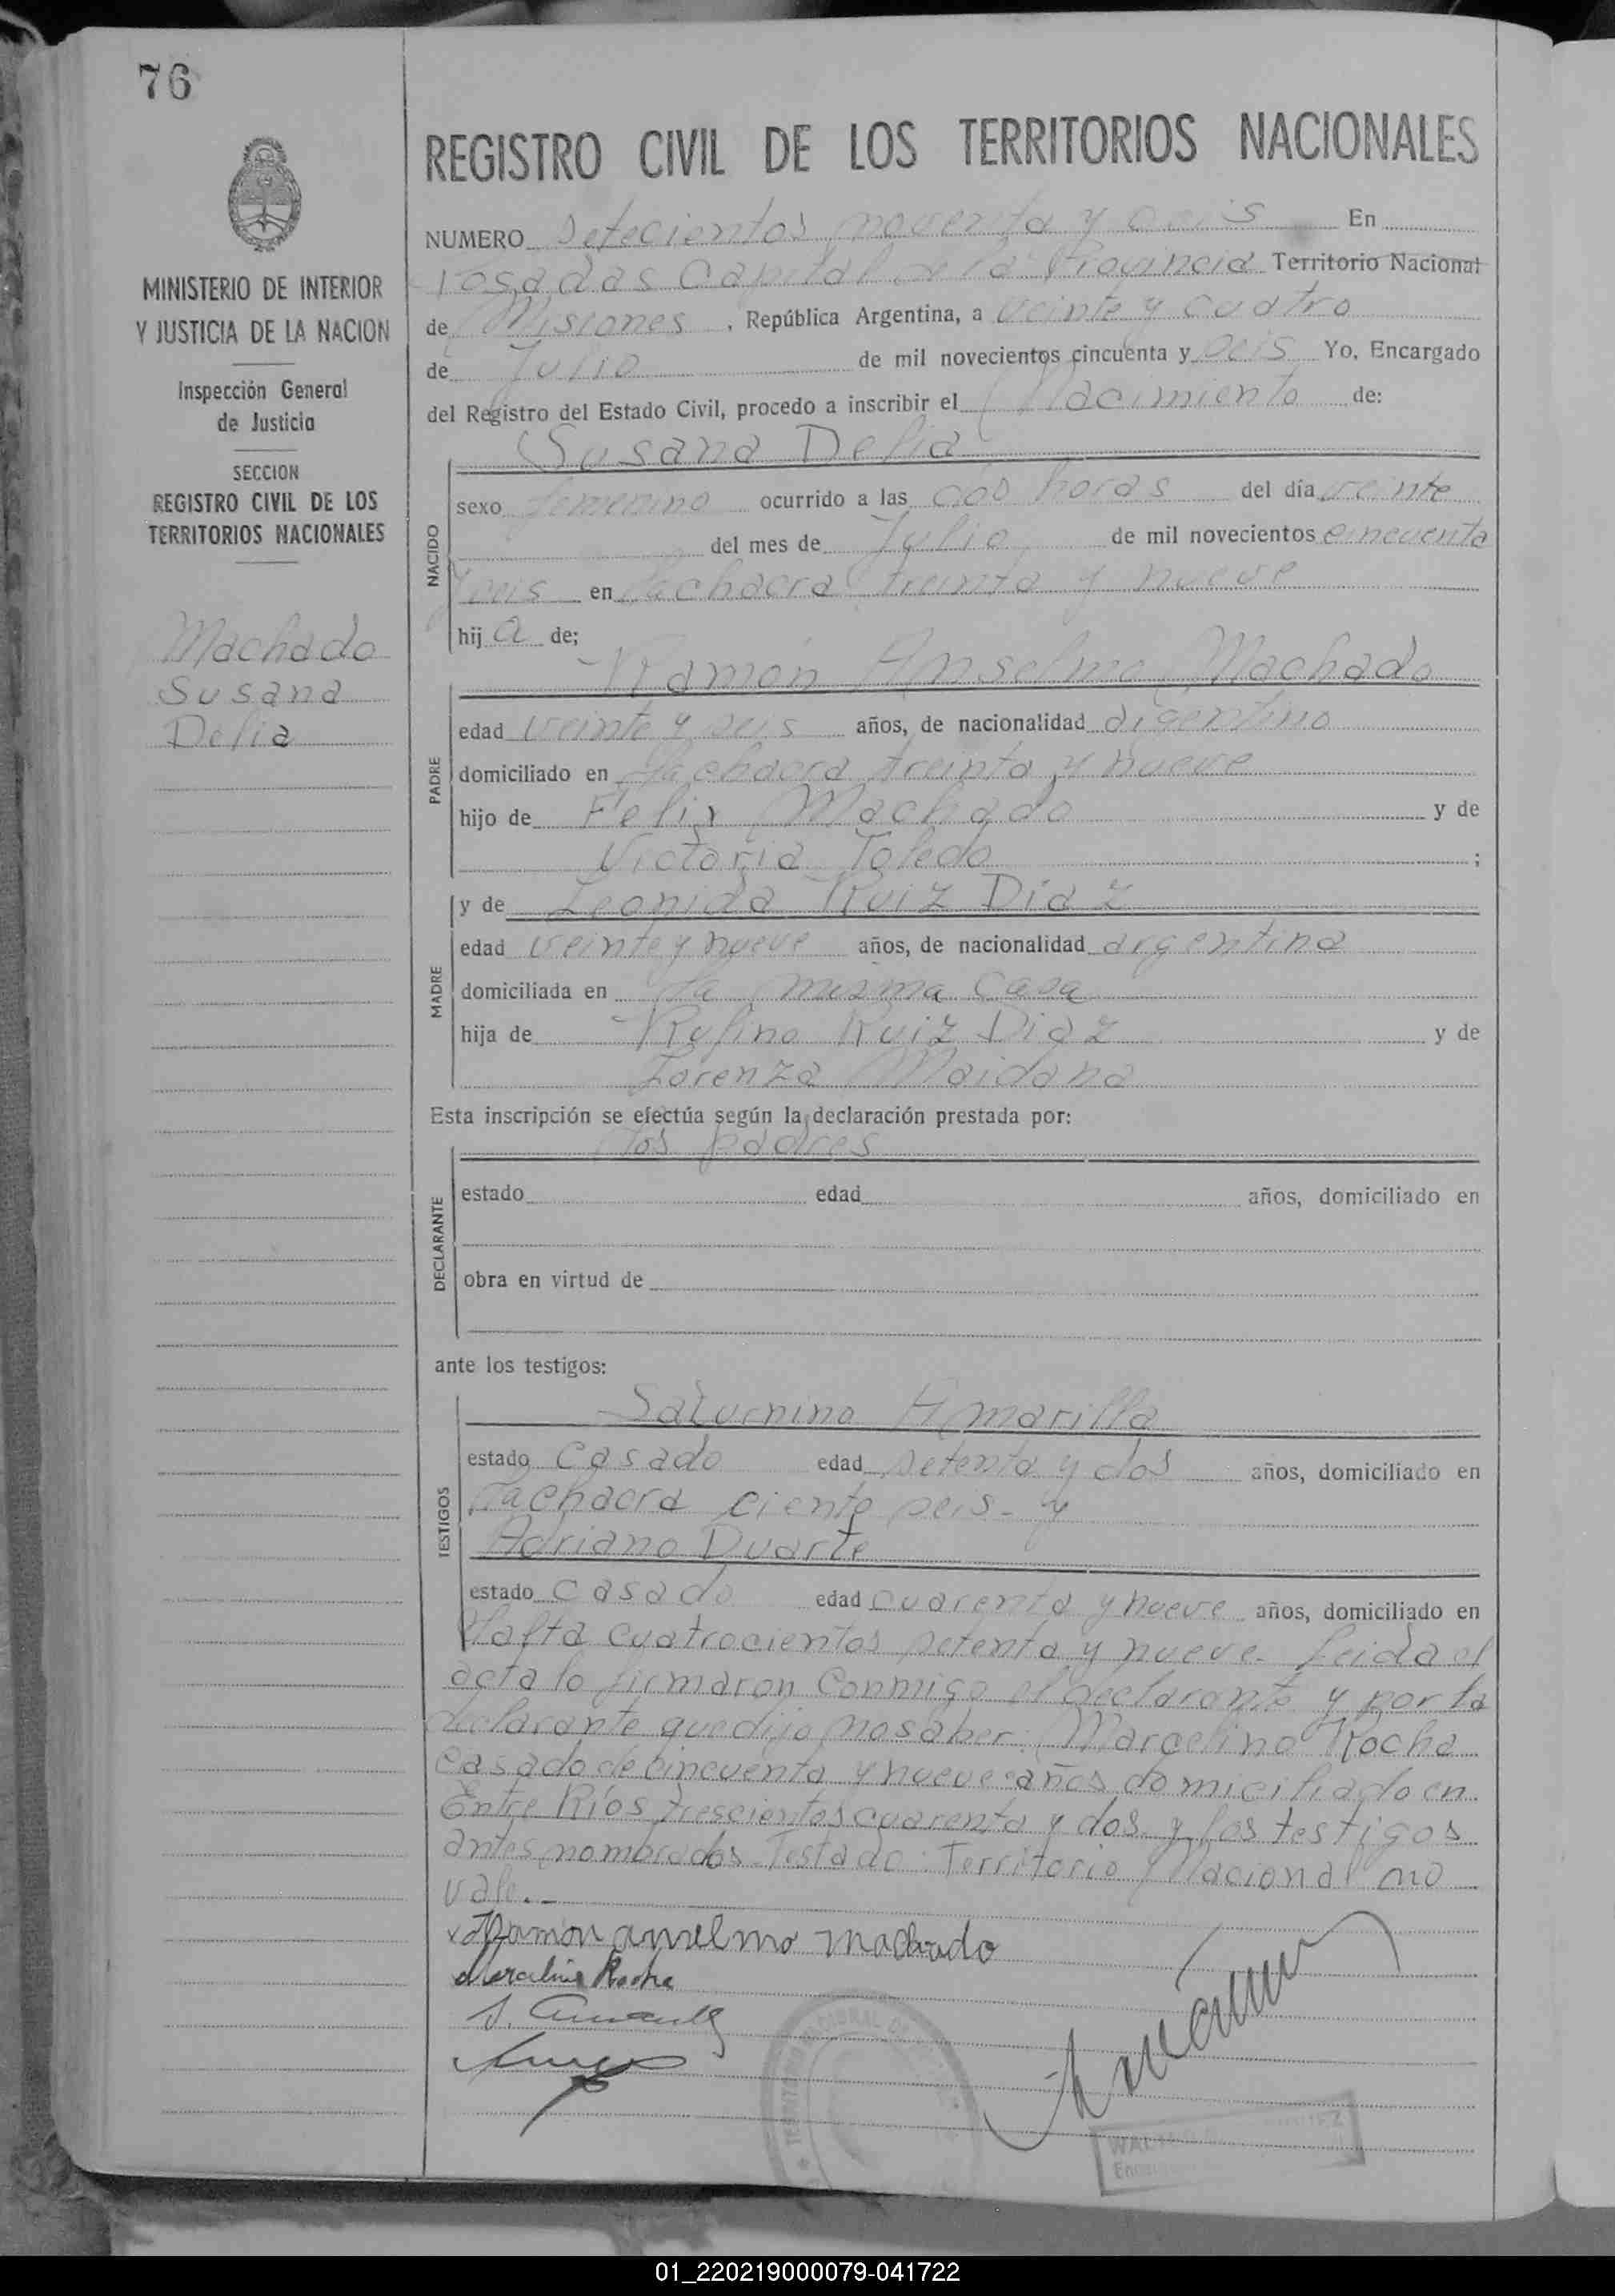 76
REGISTRO CIVIL DE LOS TERRITORIOS NACIONALES
MINISTERIO DE INTERIOR
Y JUSTICIA DE LA NACION
Inspección General
de Justicia
SECCION
REGISTRO CIVIL DE LOS
TERRITORIOS NACIONALES
Machado
Susana
Delia
NUMERO Setecientos noventa y seis En
Posadas Capital de la Provincia Territorio Nacional
de Misiones, República Argentina, a veinte y cuatro
de Julio de mil novecientos cincuenta y seis Yo, Encargado
del Registro del Estado Civil, procedo a inscribir el Nacimiento de:
Susana Delia
NACIDO
sexo femenino ocurrido a las dos horas del día veinte
del mes de Julio de mil novecientos cincuenta
y seis en la chacra treinta y nueve
hija de;
Ramón Anselmo Machado
PADRE
edad veinte y seis años, de nacionalidad argentino
domiciliado en la chacra treinta y nueve
hijo de Felix Machado y de
Victoria Toledo ;
y de Leonida Ruiz Diaz
MADRE
edad veinte y nueve años, de nacionalidad argentina
domiciliada en la misma casa
hija de Rufino Ruiz Diaz y de
Lorenza Maidana
Esta inscripción se efectúa según la declaración prestada por:
los padres
DECLARANTE
estado edad años, domiciliado en
obra en virtud de
ante los testigos:
Saturnino Amarilla
TESTIGOS
estado casado edad setenta y dos años, domiciliado en
La chacra ciento seis - y
Adriano Duarte
estado casado edad cuarenta y nueve años, domiciliado en
cuatrocientos setenta y nueve- Leida el
acta lo firmaron conmigo el declarante y por la
declarante que dijo no saber: Marcelino Rocha
casado de cincuenta y nueve años domiciliado en
Entre Ríos trescientos cuarenta y dos y los testigos
antes nombrados- Testado: Territorio Nacional no
vale.-
Ramon anselmo machado
Marcelino Rocha
01_220219000079-041722